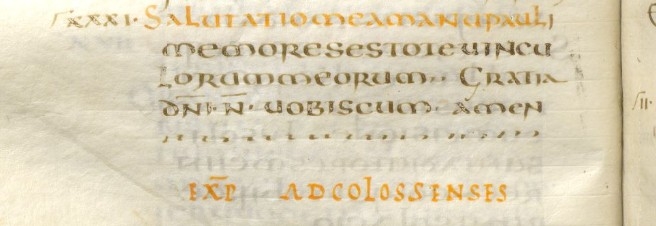 XXXI· SALUTATIO MEA MANU PAULI
MEMORES ESTOTE UINCU
LORUM MEORUM·· GRATIA
DN̄I· N̄· UOBISCUM· AMEN
EXP̄ AD COLOSSENSES